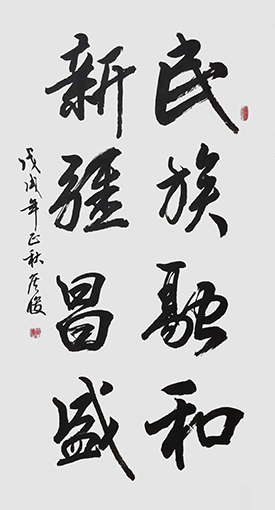 民族融和
新疆昌盛
戊戌年正秋